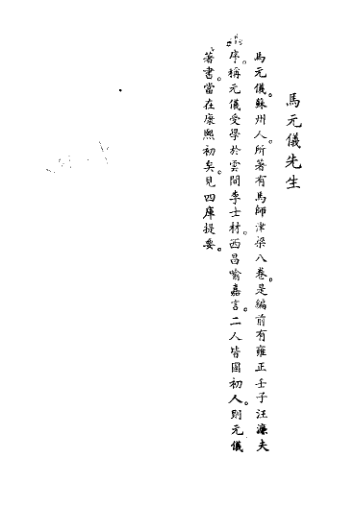 馬元儀先生
馬元儀。蘇州人。所著有馬師津梁八卷。是編前有雍正壬子汪濂夫
序。稱元儀受學於雲間李士材。西昌喻嘉言。二人皆國初人。則元儀
著書。當在康熙初矣。見四庫提要。